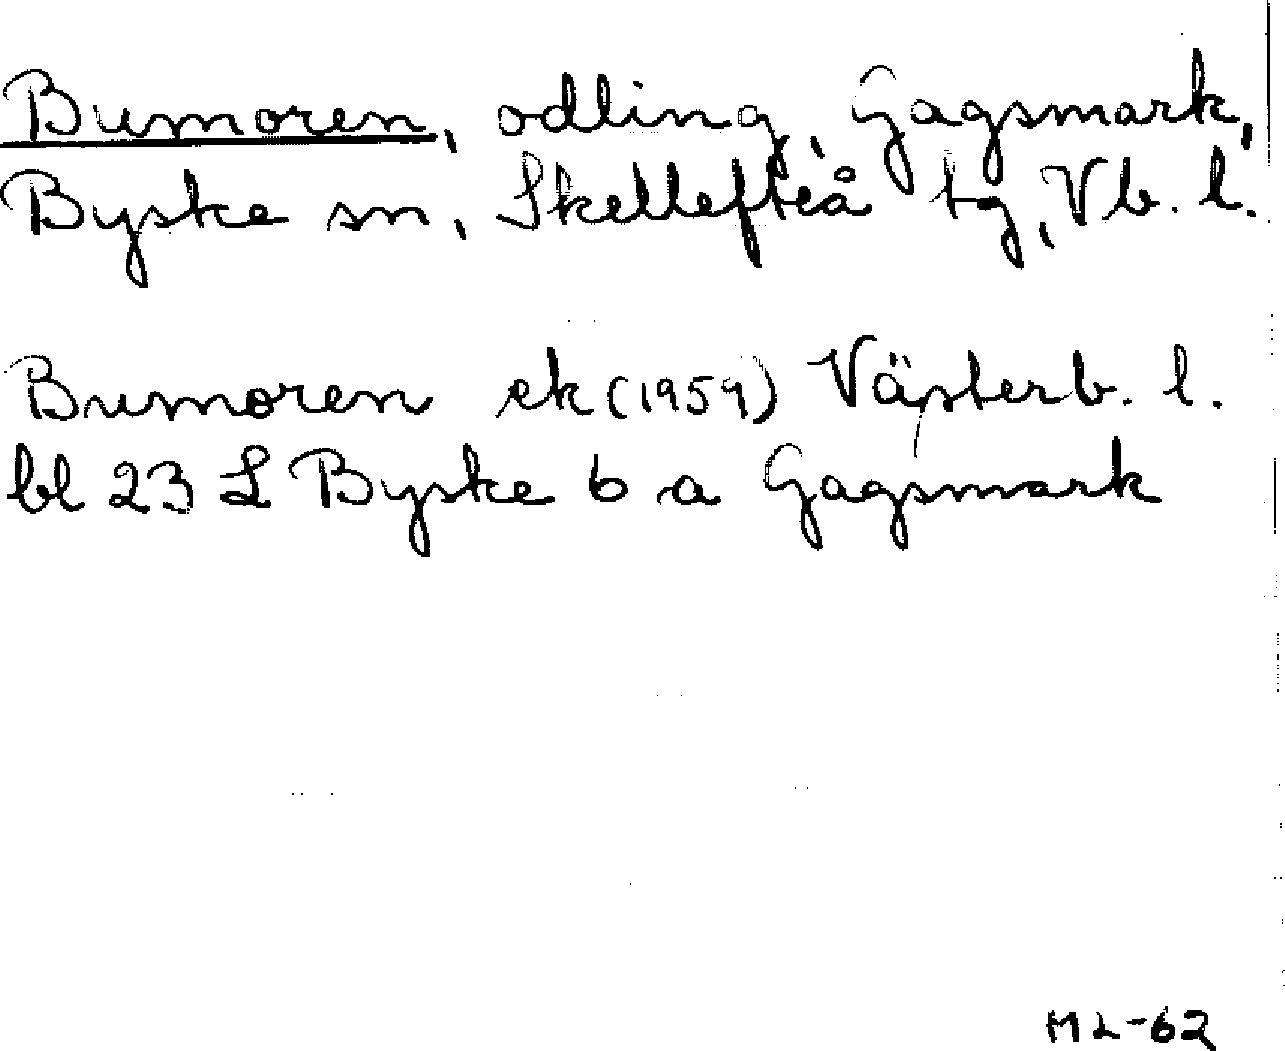 Bumoren, odling, Gagsmark,
Byske sn, Skellefteå tg, Vb. l.
Bumoren ek (1959) Västerb. l.
bl 23 L Byske 6 a Gagsmark
ML-62